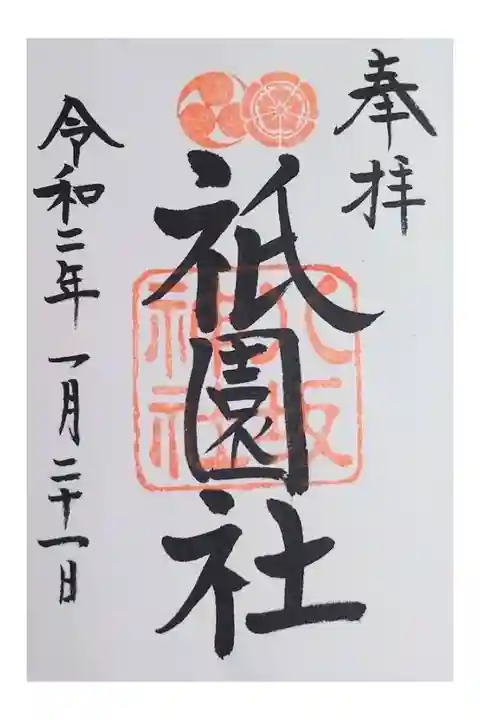 奉拝
祇園社
八坂神社
令和二年一月二十一日